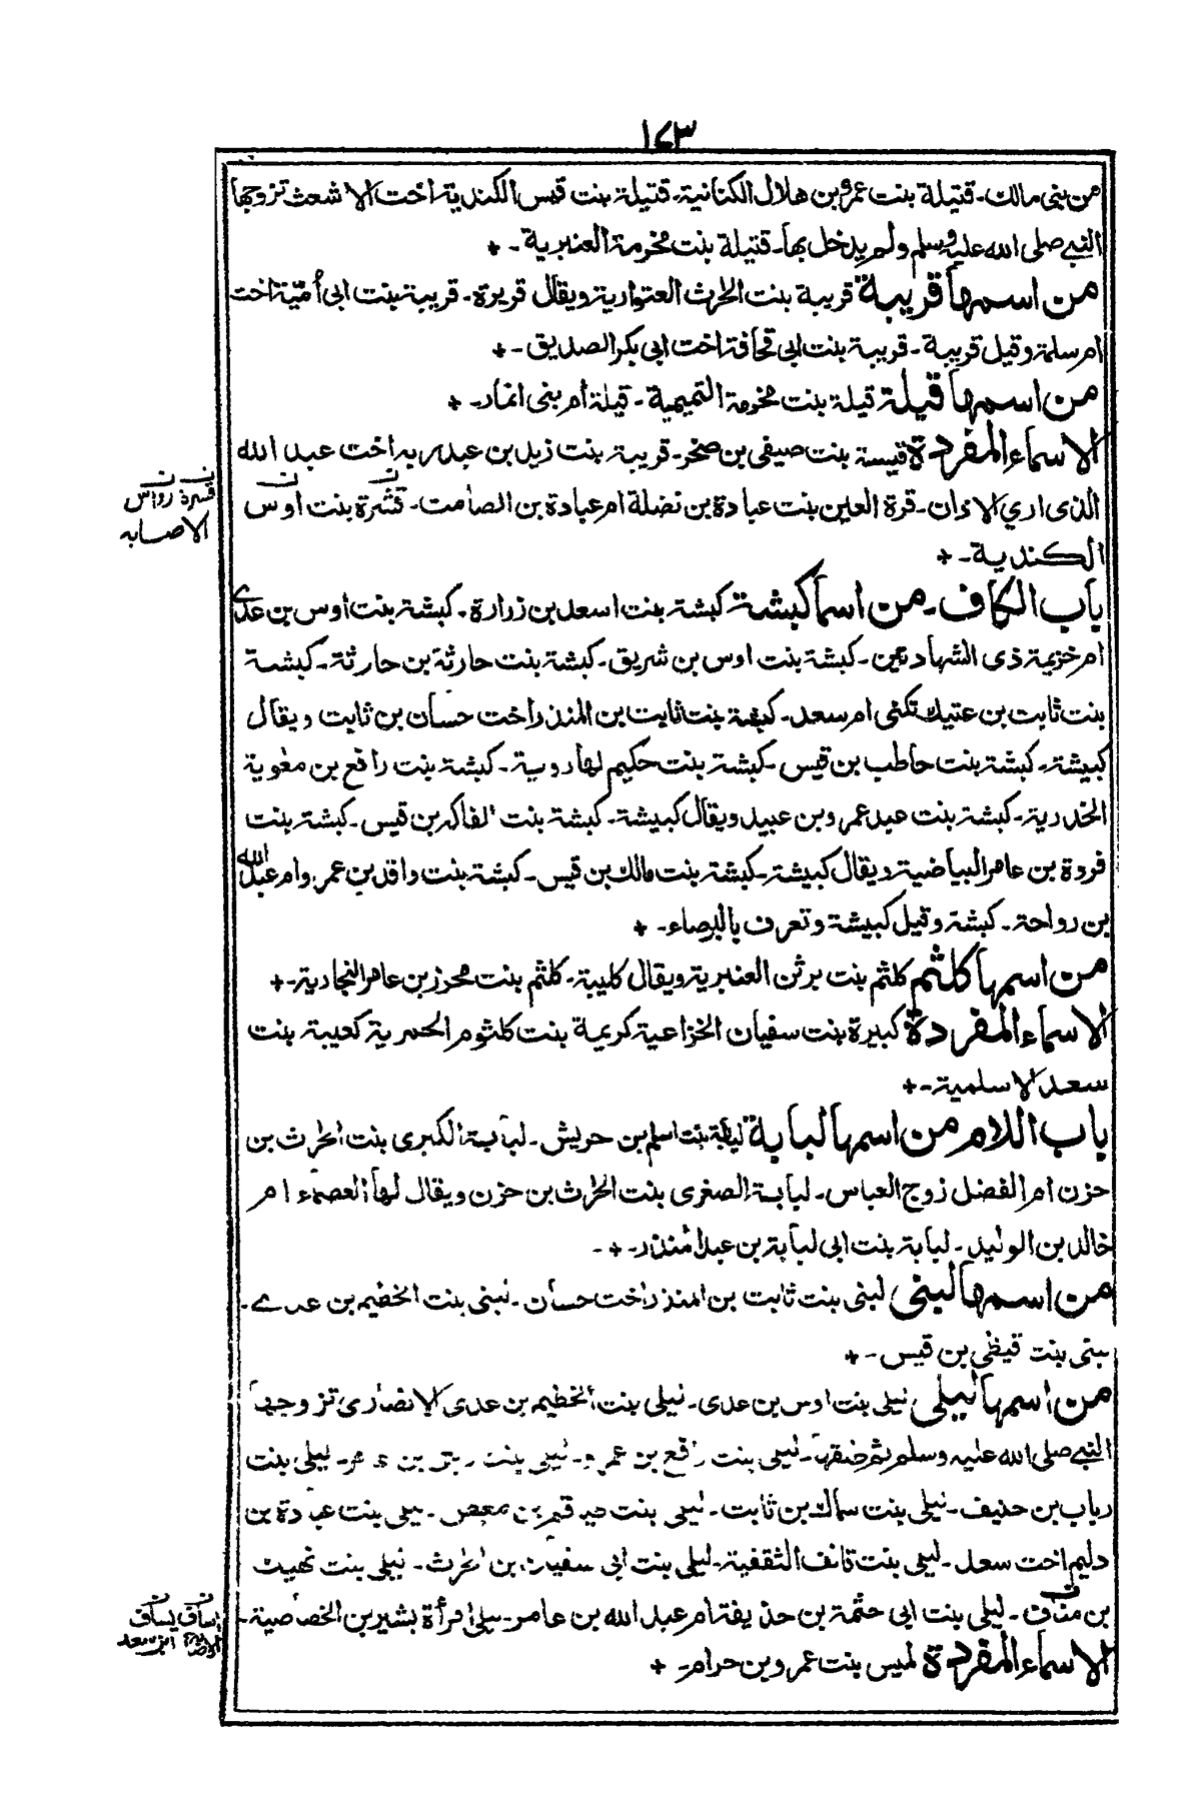 ١٤٣
من بنى مالك - قتيلة بنت عمرو بن هلال الكنانية - قتيلة بنت قيس الكندية اخت الاشعث تزوجها
النبي صلى الله عليه وسلم ولم يدخل بها - قتيلة بنت مخرمة العنبرية - +
من اسمها قريبة قريبة بنت الحرث العتوارية ويقال قريرة - قريبة بنت ابى أمية اخت
ام سلمة وقيل قريبة - قريبة بنت ابى قحافة اخت ابى بكر الصديق - +
من اسمها قيلة قيلة بنت مخرمة التميمية - قيلة أم بنى انمار - +
الاسماء المفردة قيسة بنت صيفى بن صخر - قريبة بنت زيد بن عبد ربه اخت عبد الله
الذى اري الاذان - قرة العين بنت عبادة بن نضلة ام عبادة بن الصامت - قشرة بنت اوس
الكندية - +
قسرة رواس
الاصابه
باب الكاف - من اسمها كبشة كبشة بنت اسعد بن زرارة - كبشة بنت اوس بن عدي
ام خزيمة ذى الشهادتين - كبشة بنت اوس بن شريق - كبشة بنت حارثة بن حارثة - كبشة
بنت ثابت بن عتيك تكنى ام سعد - كبشة بنت ثابت بن المنذر اخت حسان بن ثابت ويقال
كبيشة - كبشة بنت حاطب بن قيس - كبشة بنت حكيم لها روية - كبشة بنت رافع بن معٰوية
الخدرية - كبشة بنت عبد عمرو بن عبيد ويقال كبيشة - كبشة بنت الفاكه بن قيس - كبشة بنت
فروة بن عامر البياضية ويقال كبيشة - كبشة بنت مالك بن قيس - كبشة بنت واقد بن عمرو ام عبد الله
بن رواحة - كبشة وقيل كبيشة وتعرف بالبرصاء - +
من اسمها كلثم كلثم بنت برثن العنبرية ويقال كليبة - كلثم بنت محرز بن عامر النجادية - +
الاسماء المفردة كبيرة بنت سفيان الخزاعية كريمة بنت كلثوم الحميرية كعيبة بنت
سعد الاسلمية - +
باب اللام من اسمها لبابة لبابة بنت اسلم بن حريش - لبابة الكبرى بنت الحرث بن
حزن ام الفضل زوج العباس - لبابة الصغرى بنت الحرث بن حزن ويقال لها العصماء ام
خالد بن الوليد - لبابة بنت ابى لبابة بن عبد المنذر - + -
من اسمها لبنى لبنى بنت ثابت بن المنذر اخت حسان - لبنى بنت الخطيم بن عدے -
لبنى بنت قيظى بن قيس - +
من اسمها ليلى ليلى بنت اوس بن عدى - ليلى بنت الخطيم بن عدى الانصارى تزوجها
النبي صلى الله عليه وسلم ثم ... - ليلى بنت رافع بن عمرو - ليلى بنت ... بن ... - ليلى بنت
رباب بن حنيف - ليلى بنت سماك بن ثابت - ليلى بنت ... بن ... - ليلى بنت عبادة بن
دليم اخت سعد - ليلى بنت قانف الثقفية - ليلى بنت ابى سفيان بن الحرث - ليلى بنت نهيك
بن ... - ليلى بنت ابى حثمة بن حذيفة ام عبد الله بن عامر - ليلى امرأة بشير بن الخصاصية -
اساف يساف
الاصابة ابن سعد
الاسماء المفردة لميس بنت عمرو بن حرام - +